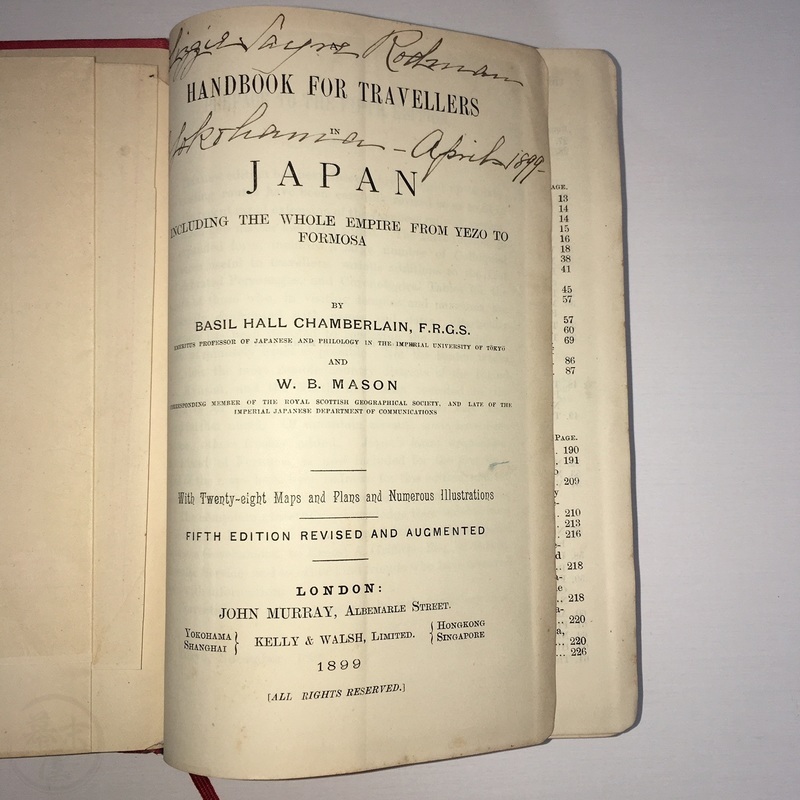 Lizzie Sayre Rodman
HANDBOOK FOR TRAVELLERS
IN
Yokohama - April - 1899 -
JAPAN
INCLUDING THE WHOLE EMPIRE FROM YEZO TO
FORMOSA
BY
BASIL HALL CHAMBERLAIN, F.R.G.S.
EMERITUS PROFESSOR OF JAPANESE AND PHILOLOGY IN THE IMPERIAL UNIVERSITY OF TŌKYŌ
AND
W. B. MASON
CORRESPONDING MEMBER OF THE ROYAL SCOTTISH GEOGRAPHICAL SOCIETY, AND LATE OF THE
IMPERIAL JAPANESE DEPARTMENT OF COMMUNICATIONS
With Twenty-eight Maps and Plans and Numerous Illustrations
FIFTH EDITION REVISED AND AUGMENTED
LONDON:
JOHN MURRAY, ALBEMARLE STREET.
YOKOHAMA } KELLY & WALSH, LIMITED. { HONGKONG
SHANGHAI } { SINGAPORE
1899
[ALL RIGHTS RESERVED.]
PAGE.
13
14
14
15
16
18
38
41
45
57
57
60
69
86
87
PAGE.
. 190
. 191
. 209
. 210
. 213
. 216
.. 218
.. 218
.. 220
.. 220
... 226